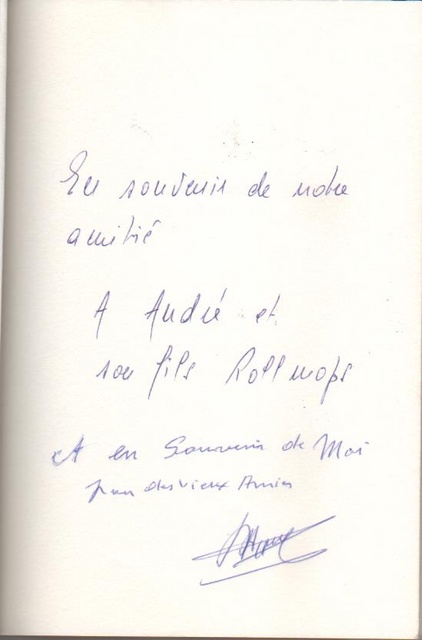 En souvenir de notre
amitié
A André et
son fils Rollmops
et en Souvenir de Moi
des vieux Amis